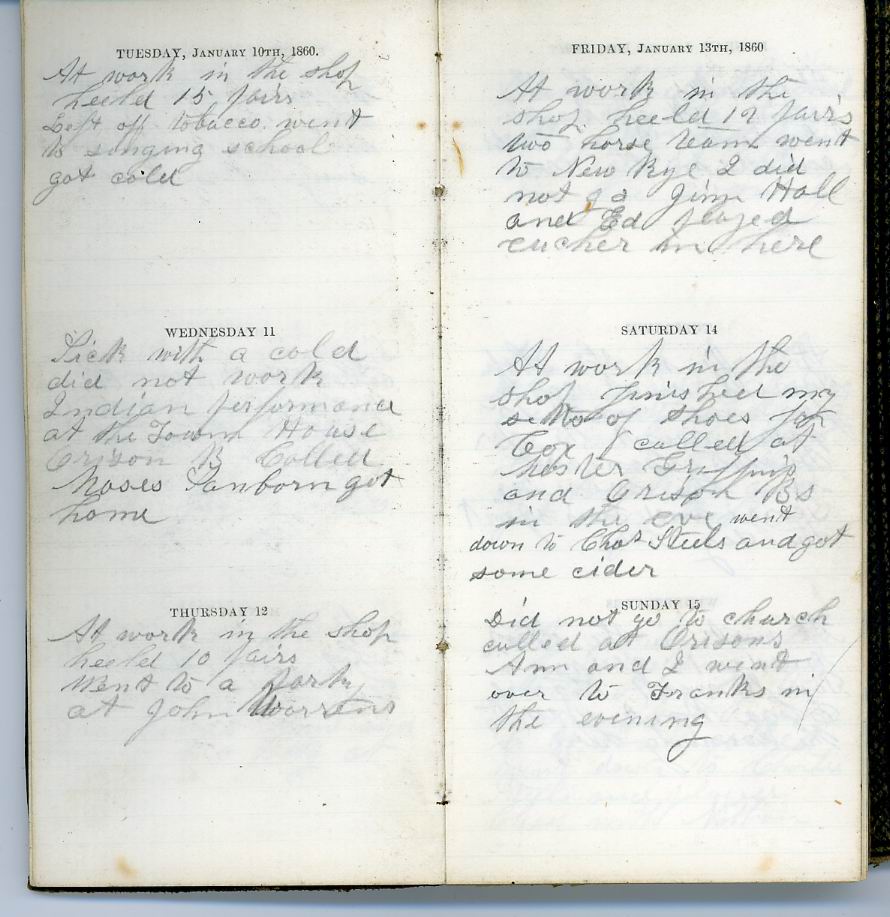 TUESDAY, JANUARY 10TH, 1860.
At work in the shop
heeld 15 pairs
Left off tobacco went
to singing school
got cold
WEDNESDAY 11
Sick with a cold
did not work
Indian performance
at the Town House
Orison B Called
Moses Sanborn got
home
THURSDAY 12
At work in the shop
heeld 10 pairs
Went to a party
at John Warrens
FRIDAY, JANUARY 13TH, 1860
At work in the
shop heeld 19 pairs
two horse team went
to New Rye I did
not go Jim Hall
and Ed played
eucher in here
SATURDAY 14
At work in the
shop finished my
of shoes for
Cox called at
Griffins
and Orison Bs
in the eve went
down to Chas Steels and got
some cider
SUNDAY 15
Did not go to church
called at Orisons
Ann and I went
over to Franks in
the evening